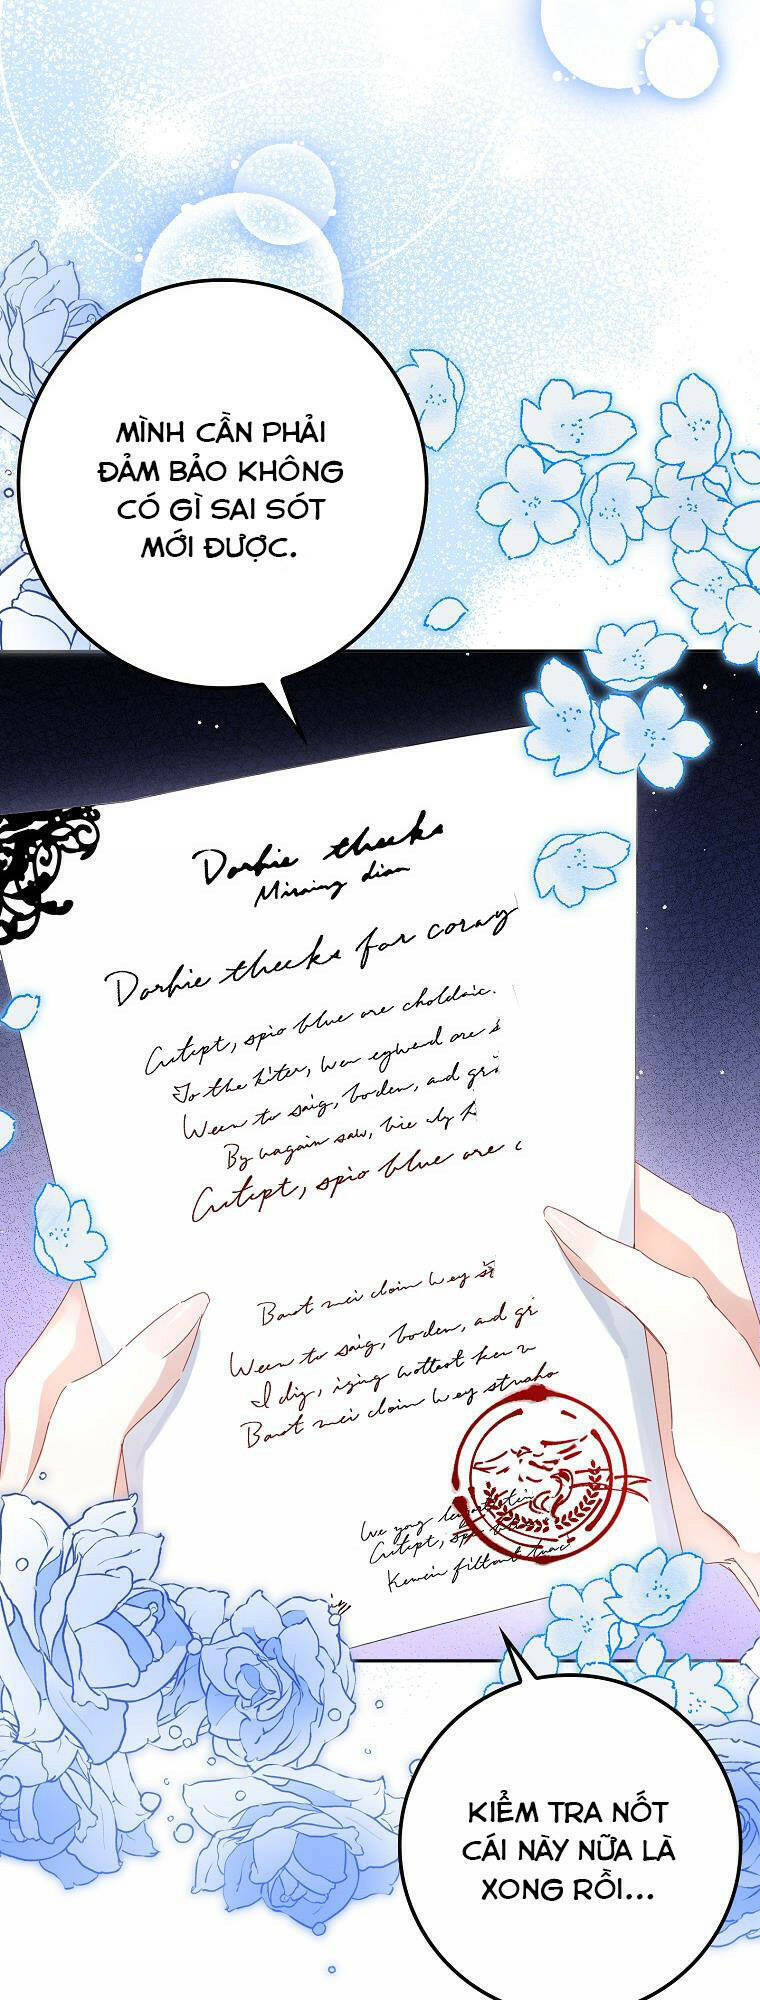 MÌNH CẦN PHẢI
ĐẢM BẢO KHÔNG
CÓ GÌ SAI SÓT
MỚI ĐƯỢC.
Dorhie theeks
Miraing dian
Dorhie theeks for coray
Cutept, spio blue are choldaic.
To the kiter, wen eywend are s
Ween to saig, boden, and gri
By wagain saw, bie ely h
Cutept, spio blue are c
Baut mei cloin wey st
Ween to saig, boden, and gi
I dig, iging wottest ken w
Baut mei cloin wey struaho
We yong
Cutept, spio
Kewein filtont trac
KIỂM TRA NỐT
CÁI NÀY NỮA LÀ
XONG RỒI...